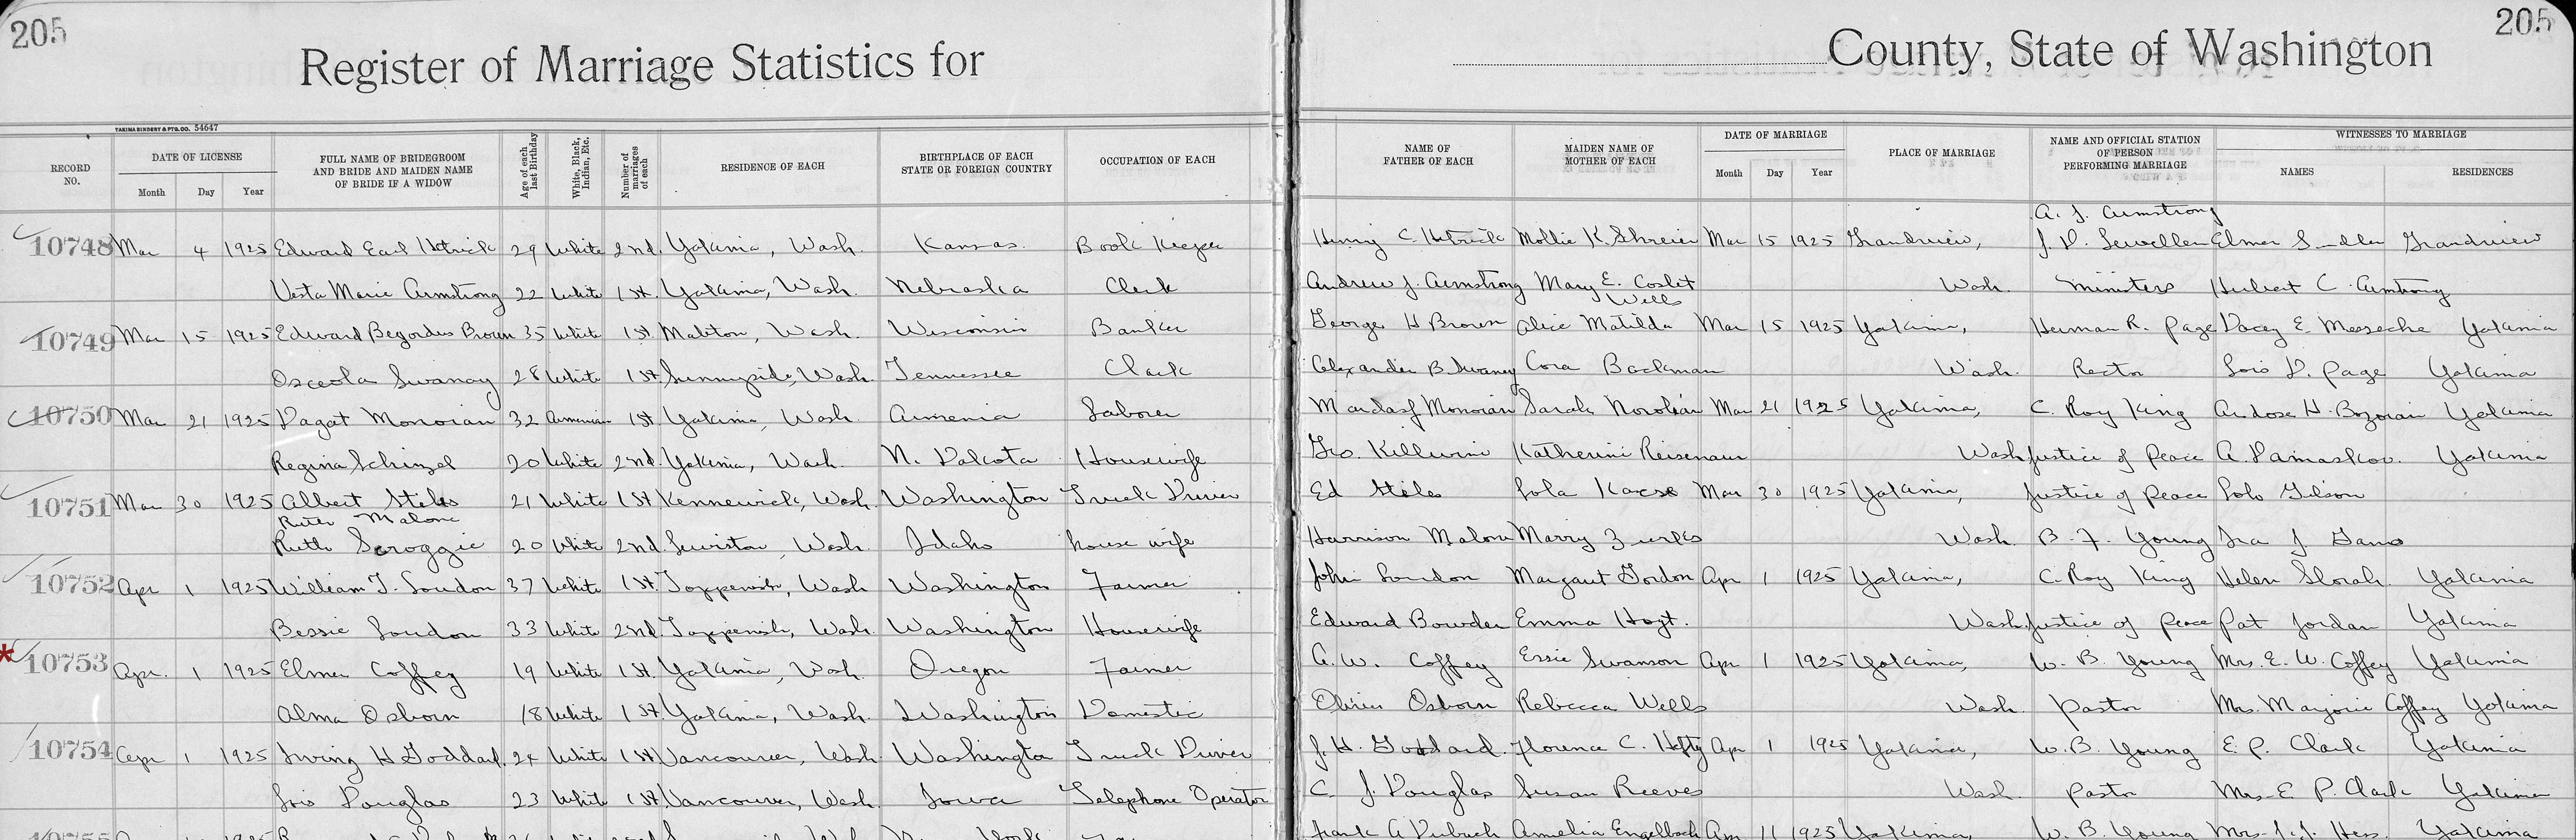 205
205
Register of Marriage Statistics for County, State of Washington
YAKIMA BINDERY & PTG. CO. 54647
RECORD NO. DATE OF LICENSE Month Day Year FULL NAME OF BRIDEGROOM AND BRIDE AND MAIDEN NAME OF BRIDE IF A WIDOW Age of each last Birthday White, Black, Indian, Etc. Number of marriages of each RESIDENCE OF EACH BIRTHPLACE OF EACH STATE OR FOREIGN COUNTRY OCCUPATION OF EACH NAME OF FATHER OF EACH MAIDEN NAME OF MOTHER OF EACH DATE OF MARRIAGE Month Day Year PLACE OF MARRIAGE NAME AND OFFICIAL STATION OF PERSON PERFORMING MARRIAGE WITNESSES TO MARRIAGE NAMES RESIDENCES
A. J. Armstrong
10748 Mar 4 1925 Edward Earl Hetrick 29 White 2nd. Yakima, Wash. Kansas. Book Keeper Henry C. Hetrick Mollie K. Shreier Mar 15 1925 Grandview, J. D. Lewellen Elmer Grandview
Vesta Marie Armstrong 22 White 1st. Yakima, Wash. Nebraska Clerk Andrew J. Armstrong Mary E. Coslet Wash. Ministers Hubert C. Armstrong
Wells
10749 Mar 15 1925 Edward Brown 35 White 1st. Mabton, Wash. Wisconsin Banker George H Brown Alice Matilda Mar 15 1925 Yakima, Herman R. Page Dacey E. Yakima
Osceola Swaney 28 White 1st. Sunnyside, Wash. Tennessee Clerk Alexander B. Swaney Cora Backman Wash. Rector Lois D. Page Yakima
10750 Mar 21 1925 Dagat Monoian 32 Armenian 1st. Yakima, Wash. Armenia Laborer Monoian Sarah Mar 21 1925 Yakima, C. Roy King H. Bozoian Yakima
Regina Schinzel 20 White 2nd. Yakima, Wash. N. Dakota Housewife Geo. Katherine Reisenauer Wash. Justice of Peace A. Damaskov. Yakima
10751 Mar 30 1925 Albert Stiles 21 White 1st Kennewick, Wash. Washington Truck Driver Ed Stiles Lola Mar 30 1925 Yakima, Justice of Peace Gilson
Ruth Malone
Ruth Scroggie 20 White 2nd. Lewiston, Wash. Idaho house wife Harrison Malone Marry Wash. B. F. Young Ira J
10752 Apr 1 1925 William T. Loudon 37 White 1st. Toppenish, Wash Washington Farmer John Loudon Margaret Gordon Apr 1 1925 Yakima, C. Roy King Helen Slorah Yakima
Bessie Loudon 33 White 2nd. Toppenish, Wash. Washington Housewife Edward Bowden Emma Hoyt. Wash. Justice of Peace Pat Jordan Yakima
* 10753 Apr. 1 1925 Elmer Coffey 19 White 1st. Yakima, Wash. Oregon Farmer A. W. Coffey Essie Swanson Apr 1 1925 Yakima, W. B. Young Mrs. E. W. Coffey Yakima
Alma Osborn 18 White 1st. Yakima, Wash. Washington Domestic Osborn Rebecca Wells Wash. Pastor Mrs. Marjorie Coffey Yakima
10754 Apr 1 1925 Irving H Goddard. 24 White 1st Vancouver, Wash Washington Truck Driver J. H. Goddard. Florence C. Hefty Apr 1 1925 Yakima, W. B. Young E. P. Clark Yakima
Lois Douglas 23 White 1st. Vancouver, Wash. Iowa Telephone Operator C. J. Douglas Susan Reeves Wash. Pastor Mrs. E. P. Clark Yakima
10755 1925 Frank A Amelia Engelbach Apr 11 1925 Yakima, W. B. Young Mrs. J. J. Hess Yakima